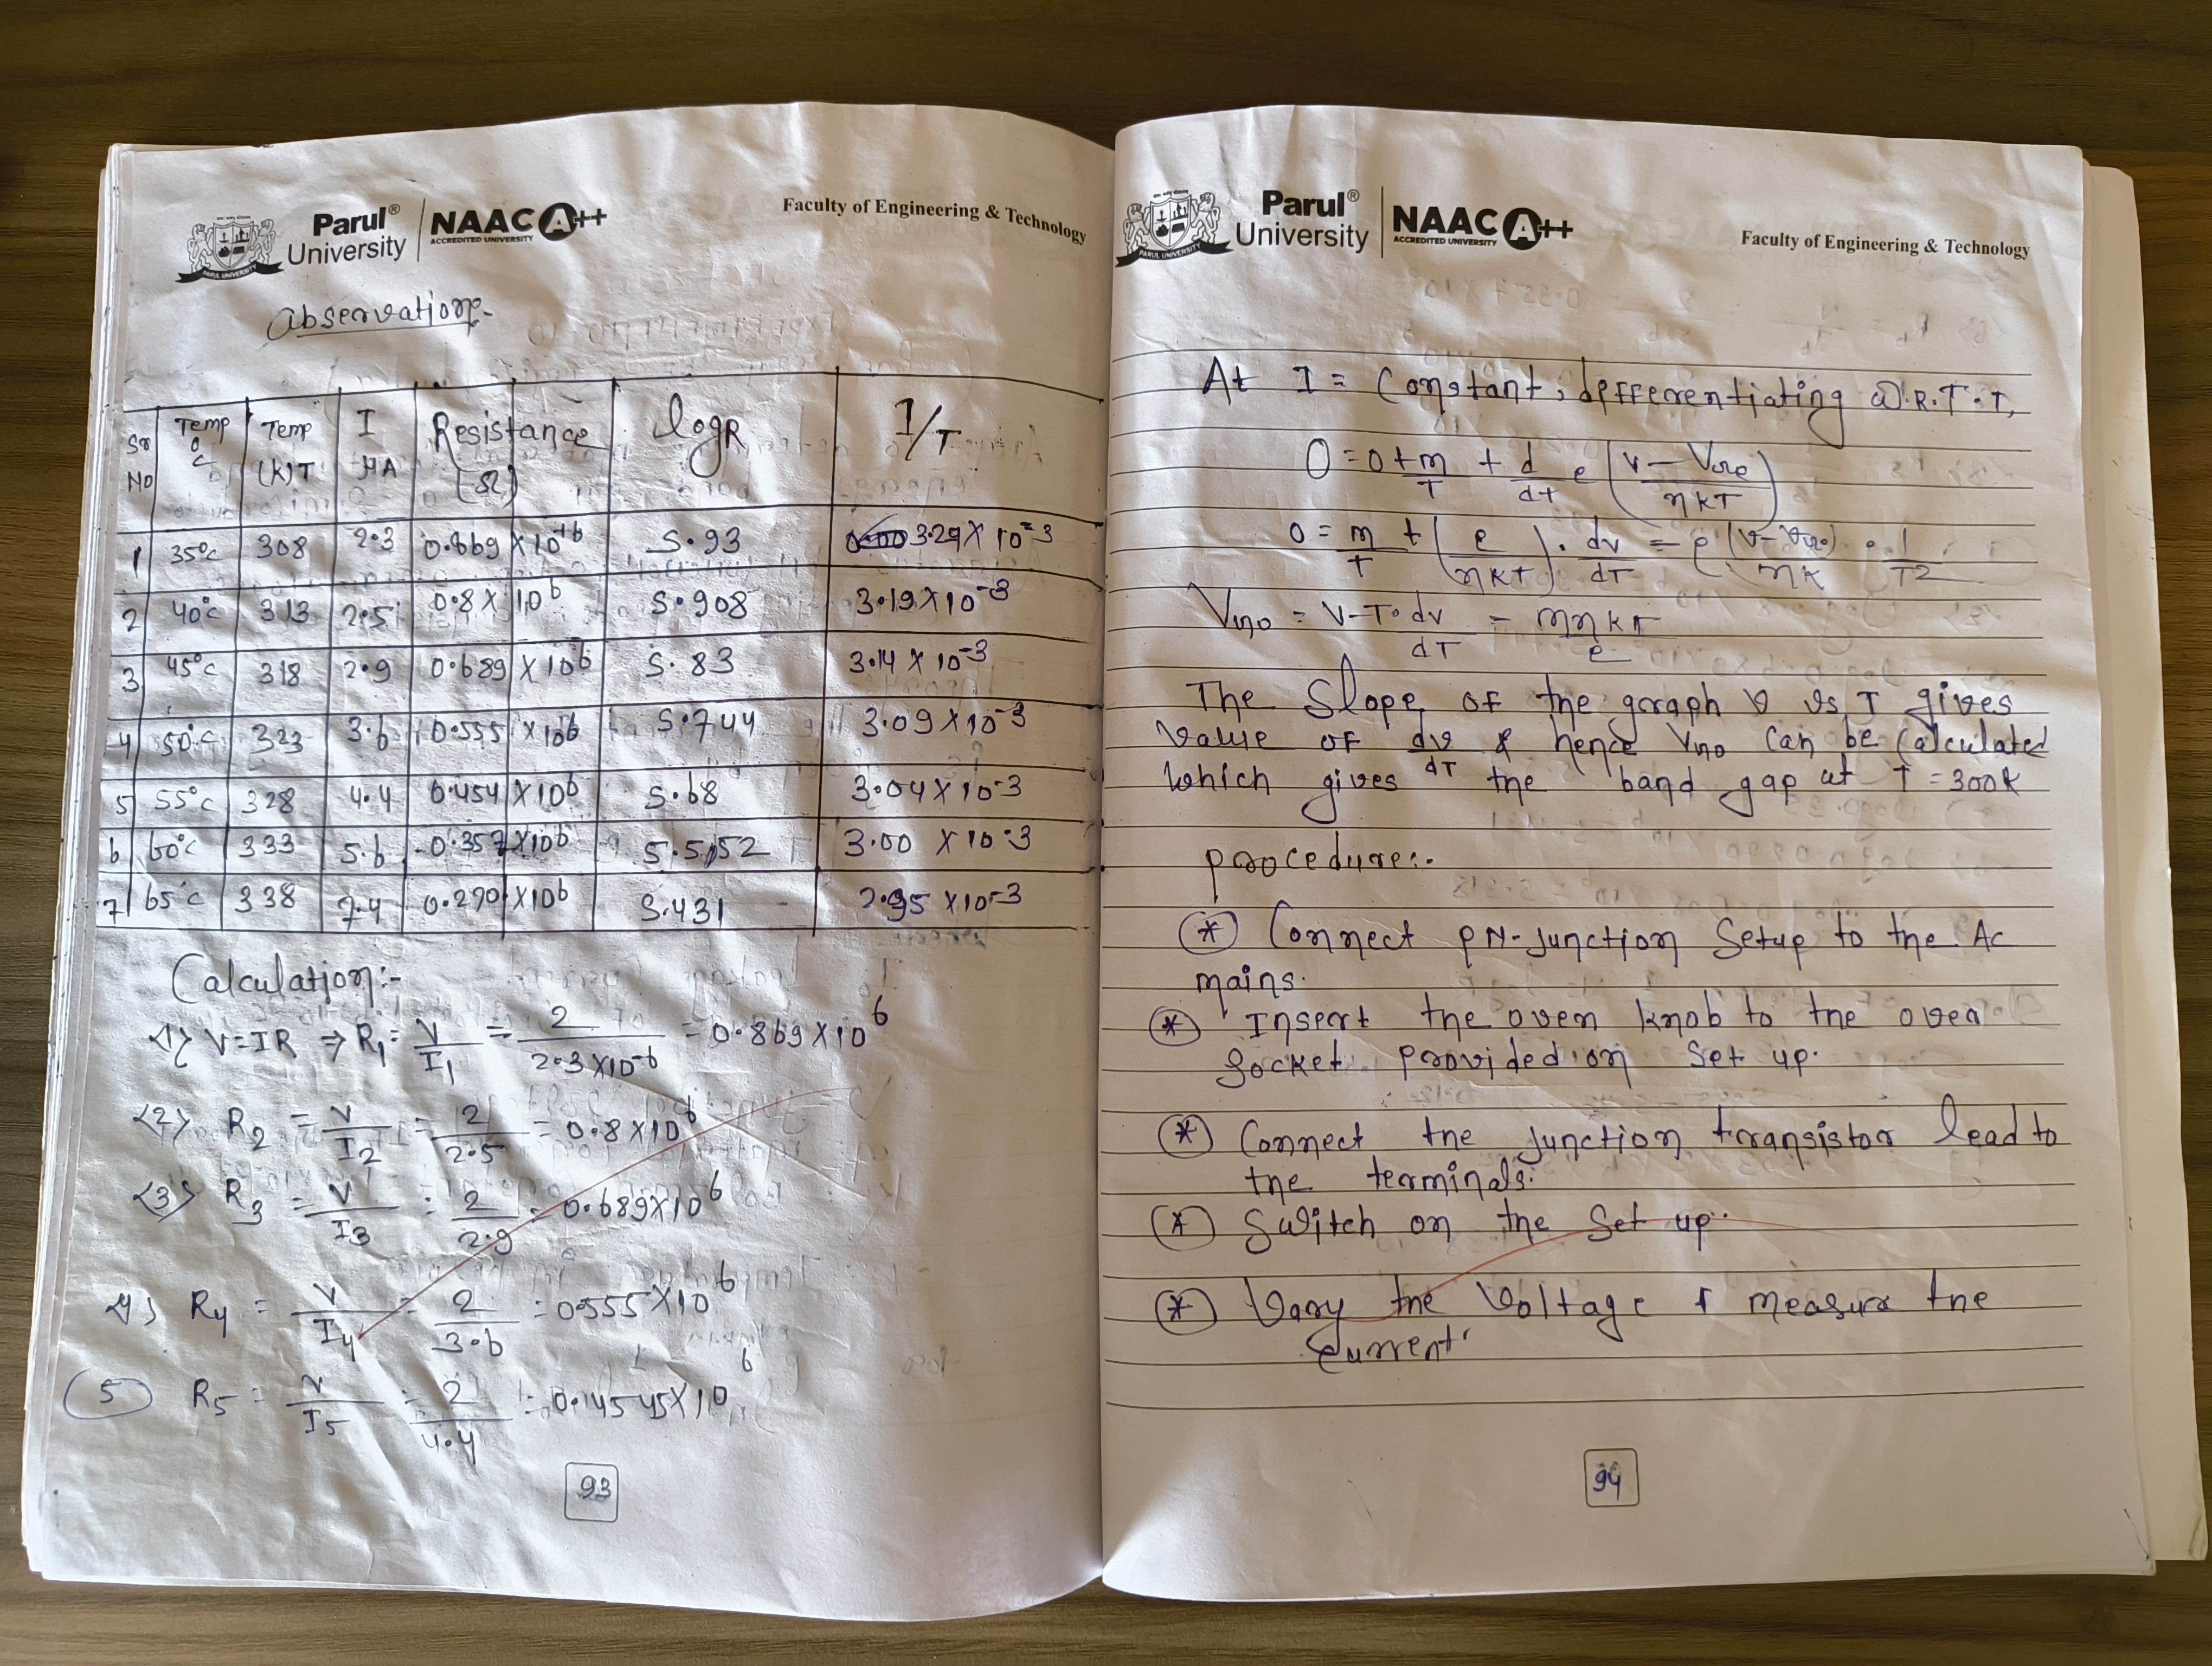 Parul® University
NAAC A++
ACCREDITED UNIVERSITY
PARUL UNIVERSITY
Faculty of Engineering & Technology
Observation:-
Sr No | Temp °C | Temp (K)T | I µA | Resistance (Ω) | logR | 1/T
1 | 35°C | 308 | 2.3 | 0.869 × 10^+6 | 5.93 | 3.29 × 10^-3
2 | 40°C | 313 | 2.5 | 0.8 × 10^6 | 5.908 | 3.19 × 10^-3
3 | 45°C | 318 | 2.9 | 0.689 × 10^6 | 5.83 | 3.14 × 10^-3
4 | 50°C | 323 | 3.6 | 0.555 × 10^6 | 5.744 | 3.09 × 10^-3
5 | 55°C | 328 | 4.4 | 0.454 × 10^6 | 5.68 | 3.04 × 10^-3
6 | 60°C | 333 | 5.6 | 0.357 × 10^6 | 5.552 | 3.00 × 10^-3
7 | 65°C | 338 | 7.4 | 0.270 × 10^6 | 5.431 | 2.95 × 10^-3
Calculation:-
<1> V=IR ⇒ R1 = V/I1 = 2/2.3×10^-6 = 0.869 × 10^6
<2> R2 = V/I2 = 2/2.5 = 0.8 × 10^6
<3> R3 = V/I3 = 2/2.9 = 0.689 × 10^6
4> R4 = V/I4 = 2/3.6 = 0.555 × 10^6
5 R5 = V/I5 = 2/4.4 = 0.4545 × 10^6
93
Parul® University
NAAC A++
ACCREDITED UNIVERSITY
PARUL UNIVERSITY
Faculty of Engineering & Technology
At I = Constant, differentiating W.R.T.T,
0 = 0 + m/T + d/dT e (V - Vgo / ηkT)
0 = m/T + (e/ηkT) . dv/dT = e (V-Vgo)/ηk . 1/T2
Vgo = V-T.dv/dT - mηkT/e
The Slope of the graph V vs T gives
value of dv/dT & hence Vgo can be calculated
which gives the band gap at T = 300K
procedure:-
* Connect PN-junction Setup to the AC
mains.
* Insert the oven knob to the oven
socket provided on set up.
* Connect the junction transistor lead to
the terminals.
* Switch on the Set up.
* Vary the Voltage & measure the
current
94